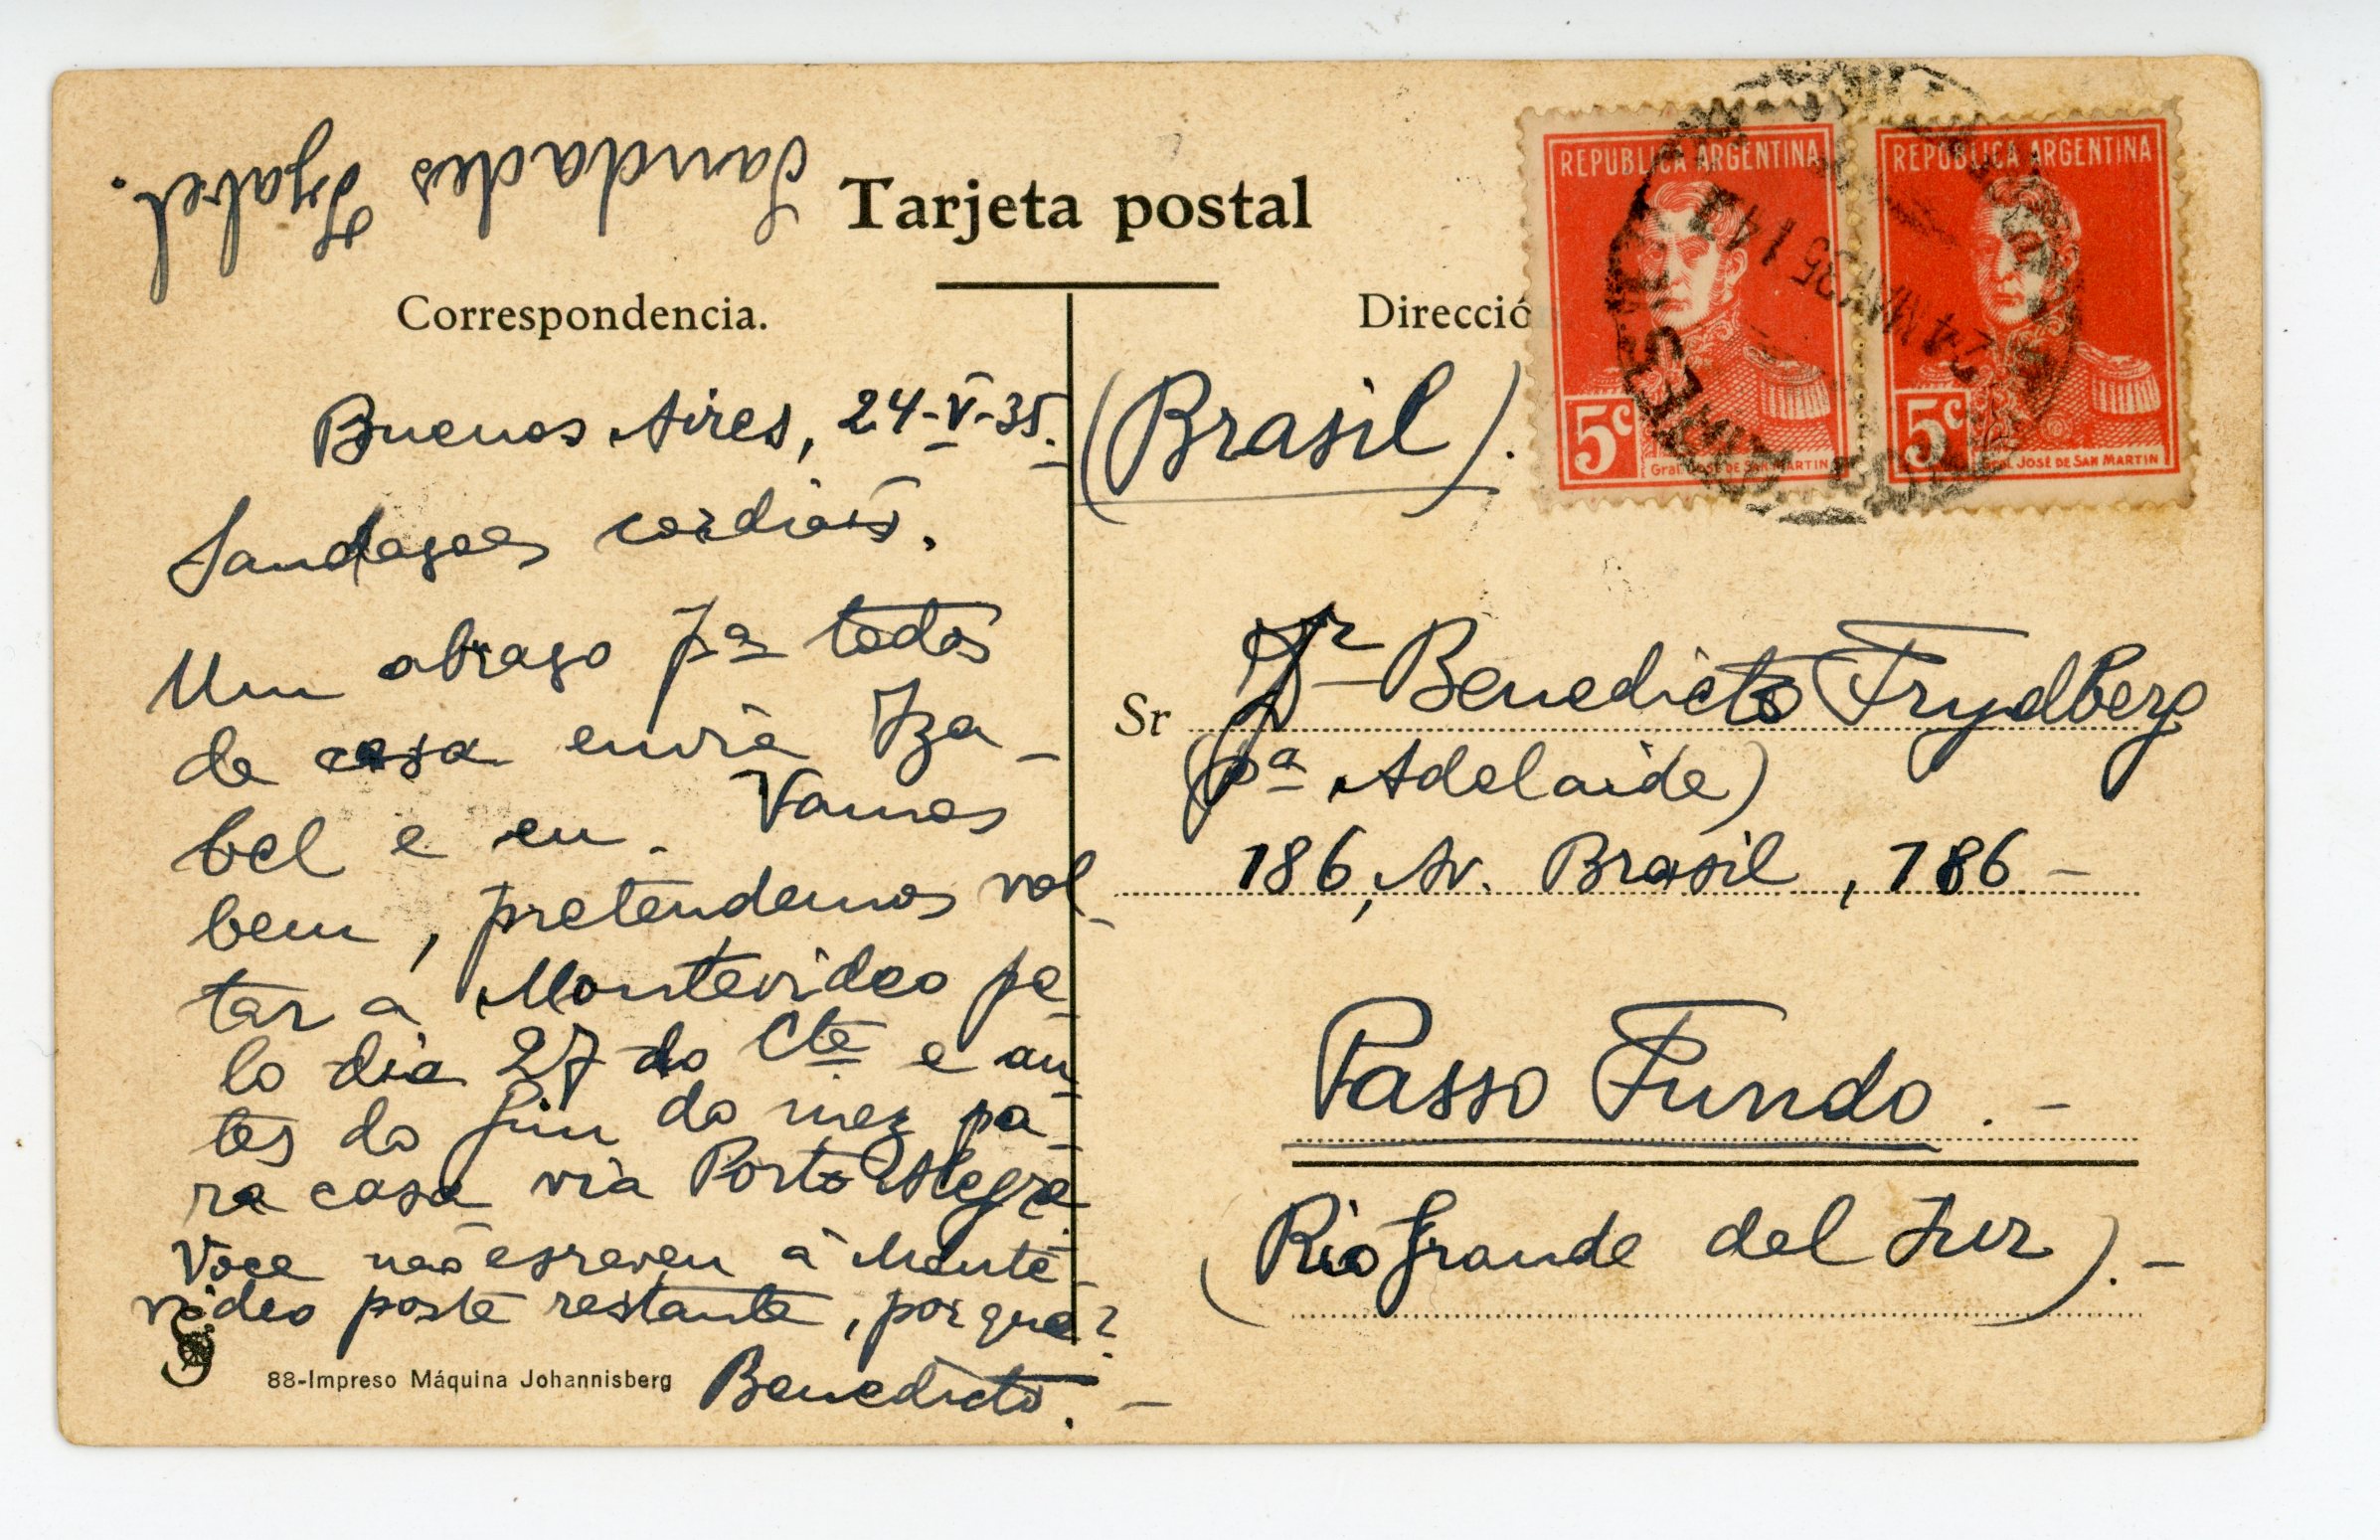 Saudades Izabel.
Tarjeta postal
Correspondencia.
Direcció
REPUBLICA ARGENTINA
5c
Gral. JOSÉ DE SAN MARTIN
REPUBLICA ARGENTINA
5c
Gral. JOSÉ DE SAN MARTIN
24 MAY 35
Buenos Aires, 24-V-35.
Saudaçoes cordiais.
Um abraço pª todos
de casa envia Iza-
bel e eu. Vamos
bem, pretendemos vol-
tar a Montevideo pe-
lo dia 27 do Cte e an-
tes do fim do mez pa-
ra casa via Porto Alegre.
Voce não esreveu a Monte-
video poste restante, por que?
Benedicto.-
88-Impreso Máquina Johannisberg
(Brasil).
Sr
Benedicto Frydberg
(pª Adelaide)
186, Av. Brasil, 186-
Passo Fundo.-
(Rio Grande del Sur).-